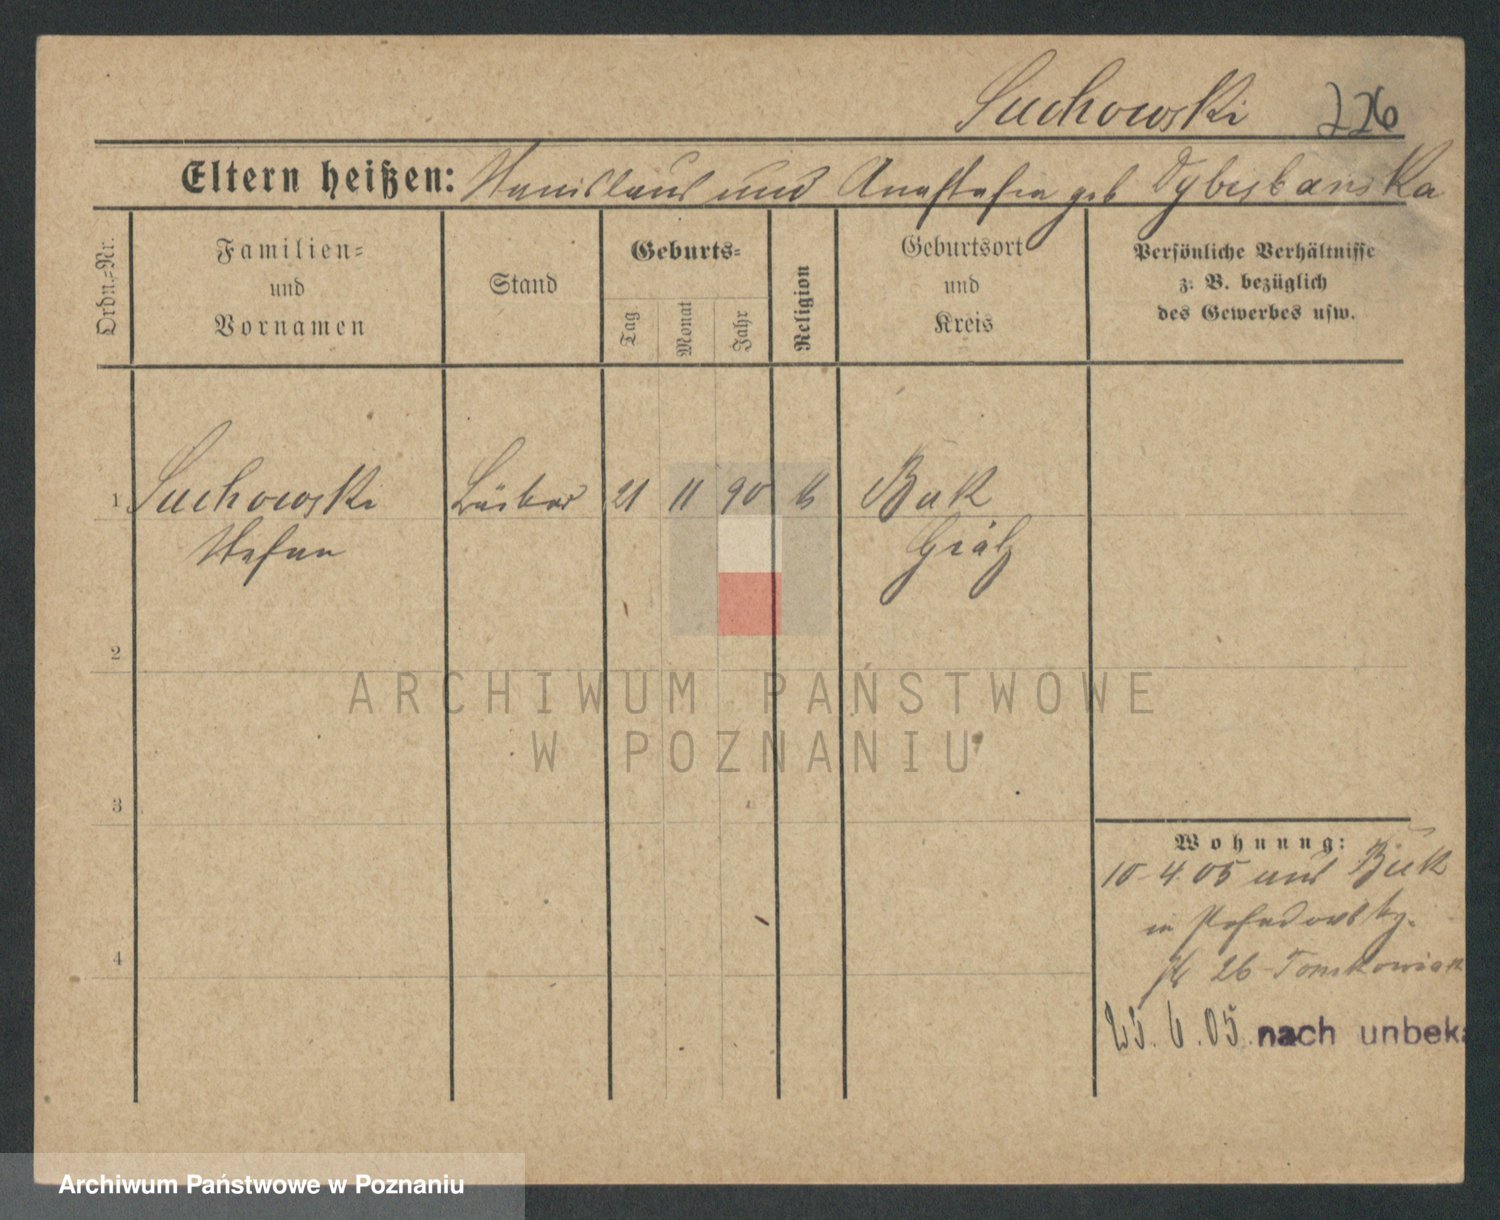 Suchowski 226
Eltern heißen: Stanislaus und Anastasia geb
Ordn.=Nr.
Familien=
und
Vornamen
Stand
Geburts=
Tag
Monat
Jahr
Religion
Geburtsort
und
Kreis
Persönliche Verhältnisse
z. B. bezüglich
des Gewerbes usw.
1 Suchowski 21 11 90 k Buk
Stefan Grätz
2
3
4
Wohnung:
10.4.05 aus Buk
26 Tomkowiak
23.6.05. nach unbeka
ARCHIWUM PAŃSTWOWE
W POZNANIU
Archiwum Państwowe w Poznaniu